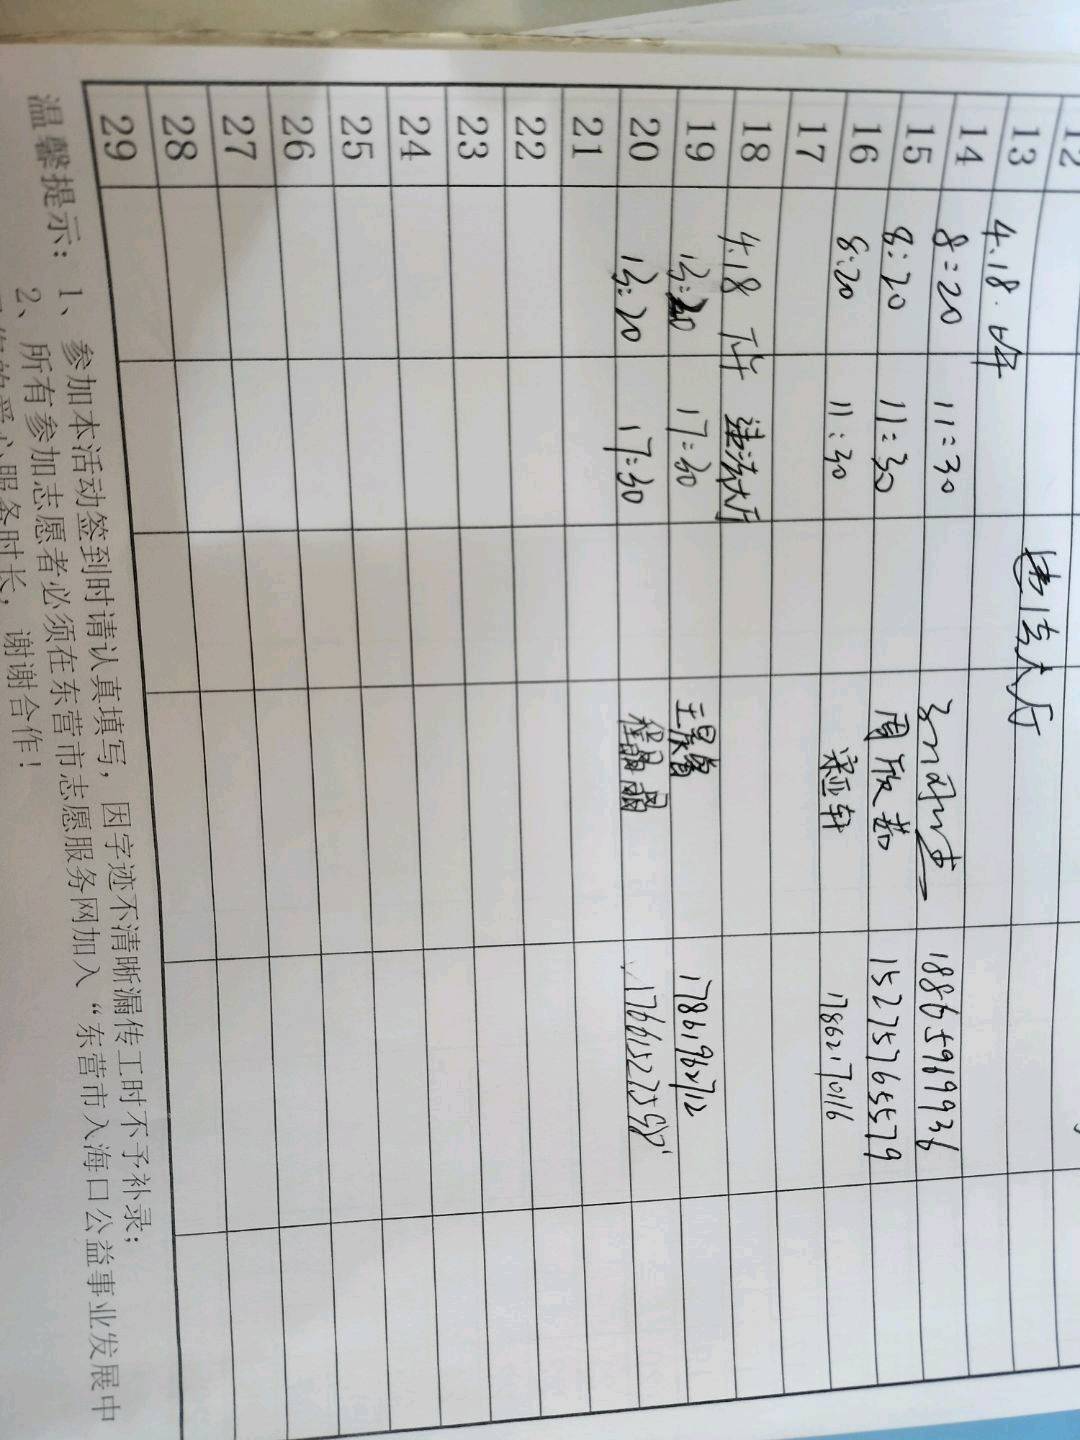 12
13 4.18.上午 违法大厅
14 8:20 11:30 18865969936
15 8:20 11:30 周欣茹 15275765579
16 8:20 11:30 宋亚轩 17862170116
17
18 4.18 下午 违法大厅
19 13:20 17:30 17861962712
20 13:20 17:30 程晶晶 17661527598
21
22
23
24
25
26
27
28
29
温馨提示：1、参加本活动签到时请认真填写，因字迹不清晰漏传工时不予补录；
2、所有参加志愿者必须在东营市志愿服务网加入“东营市入海口公益事业发展中
的爱心服务时长，谢谢合作！